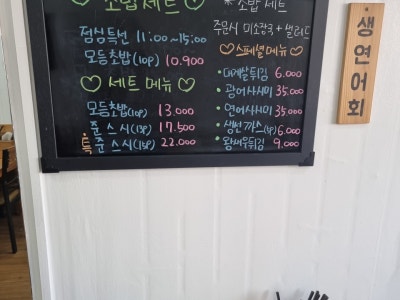 ♡ 초밥 세트 ♡
점심특선 11:00~15:00
모듬초밥(10P) 10.900
♡ 세트 메뉴 ♡
모듬초밥(10P) 13.000
준 스시(13P) 17.500
특 준 스시(15P) 22.000
* 초밥 세트
주문시 미소장국 + 샐러드
♡스페셜 메뉴♡
• 대게살튀김 6.000
• 광어사시미 35.000
• 연어사시미 35.000
• 생선까스(1P) 6.000
• 왕새우튀김 9.000
생연어회